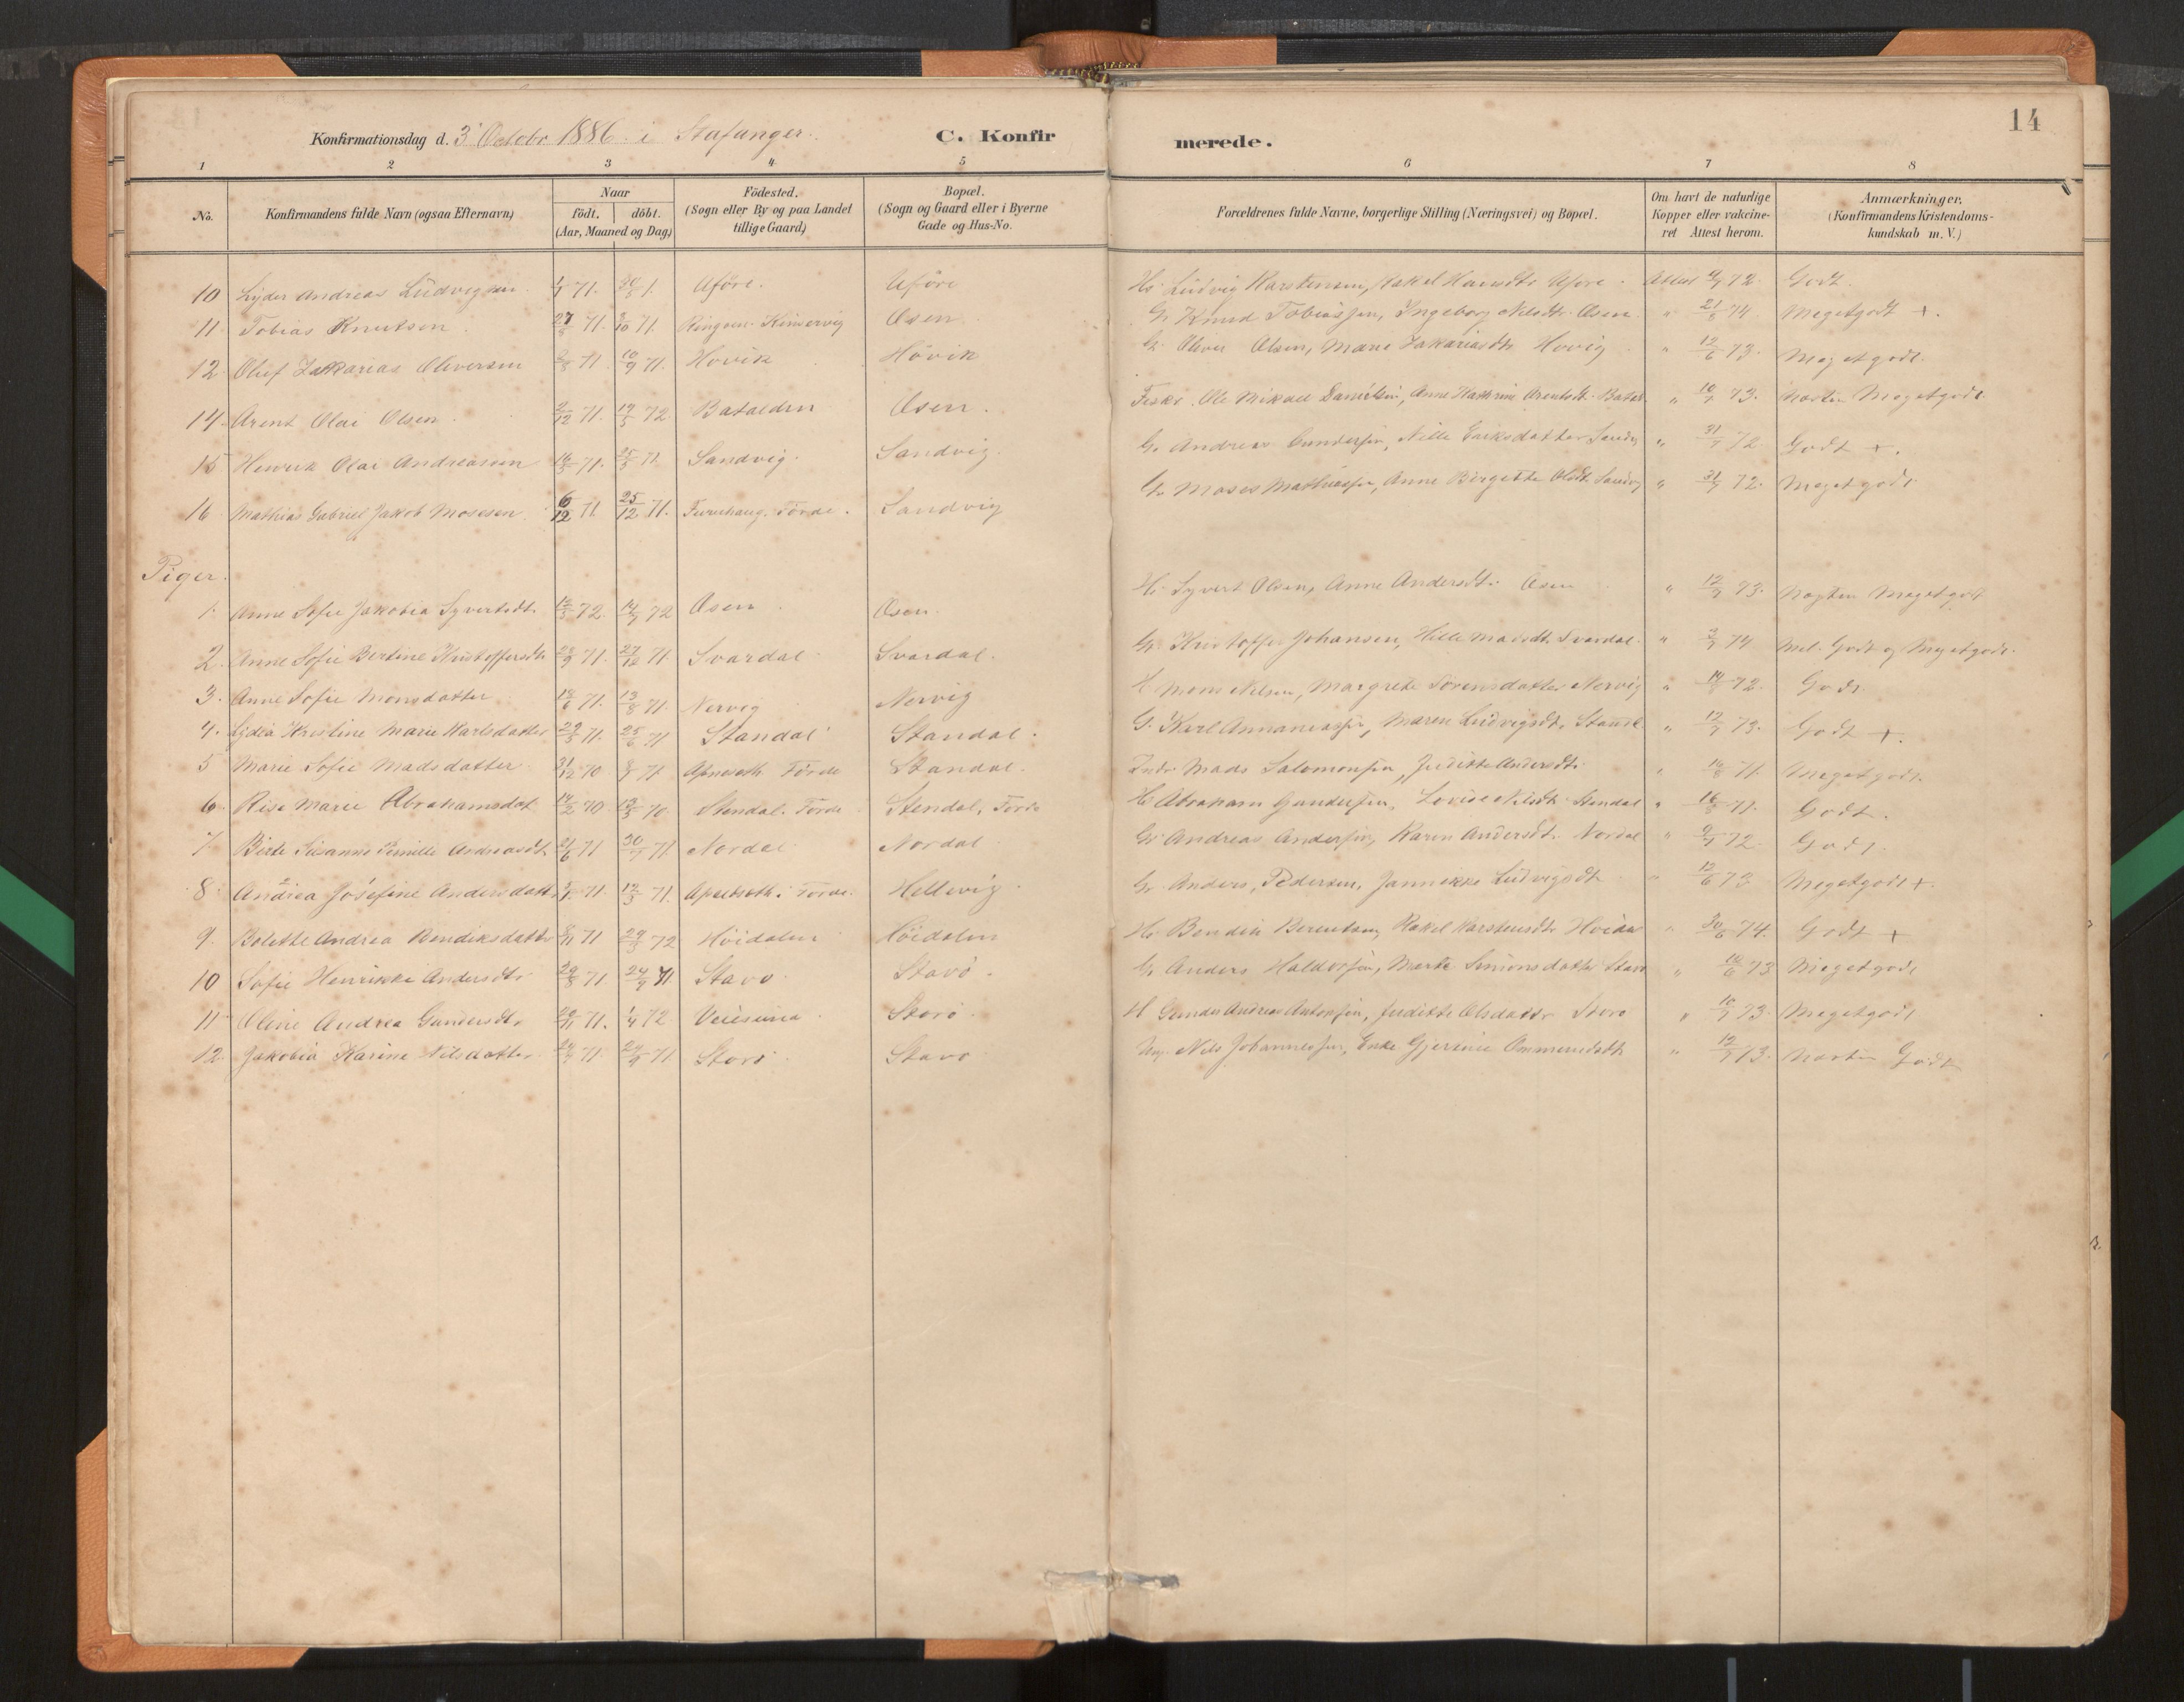 14
Konfirmationsdag d. 3 Octobr 1886 i Stafanger.
C. Konfirmerede.
1 2 3 4 5 6 7 8
No. Konfirmandens fulde Navn (ogsaa Efternavn) Naar födt. döbt. (Aar, Maaned og Dag) Födested. (Sogn eller By og paa Landet tillige Gaard) Bopæl. (Sogn og Gaard eller i Byerne Gade og Hus-No. Forældrenes fulde Navne, borgerlige Stilling (Næringsvei) og Bopæl. Om havt de naturlige Kopper eller vakcineret Attest herom. Anmærkninger. (Konfirmandens Kristendomskundskab m. V.)
10 Lyder Andreas Ludvigsen 71. Ludvig Karstensen, Rakel Hansdtr 72. Godt.
11 Tobias Knutsen 71. 3/10 71. Osen Gr. Knud Tobiassen, Ingeborg Nilsdtr. Osen " 21/6 74 Megetgodt +.
12 Oluf Zakarias Oliversen 71 10/9 71. Hovik Hövik Gr. Oliver Olsen, Marie Zakariasdtr Hovig " 12/6 73. Megetgodt.
14 Arent Olai Olsen 2/12 71. 72 Batalden Osen. Fisker. Ole Mikael Danielsen, Anne Kathrine Arentsdt. Batal " 10/7 73. Næsten Megetgodt
15 Henrik Olai Andreassen 71. 71 Sandvig. Sandvig. Gr. Andreas Gundersen, Nille Eriksdatter Sandv " 31/7 72 Godt +.
16 Mathias Gabriel Jakob Mosesen 6/12 71. 25/12 71. Furuhaug. Förde. Sandvig Gr. Moses Mathiassen, Anne Birgitte Olsdt. Sandv " 31/7 72. Megetgodt
Piger.
1. Anne Sofie Jakobia Syvertsdt. 72. 72 Osen Osen. H. Syvert Olsen, Anne Andersdt. Osen " 12/7 73. Næsten Megetgodt
2. Anne Sofie Bertine Kristoffersdtr 71. 27/12 71. Svardal Svardal. Gr. Kristoffer Johansen, Hille Madsdt. Svardal. " 74 Mel. Godt og Megetgodt.
3. Anne Sofie Monsdatter 18/6 71. 13/8 71. Nervig Nervig H Mons Nilsen, Margrete Sörensdatter Nervig " 72. Godt
4. Lydia Kristine Marie Karlsdatter 71. 25/6 71 Standal Standal. G. Karl Annaniassen, Maren Ludvigsdt. Standl " 12/7 73. Godt +.
5 Marie Sofie Madsdatter 31/12 70 71 Förde Standal. Indr. Mads Salomonsen, Juditte Andersdt. " 71. Megetgodt.
6. Rise Marie Abrahamsdot 14/2 70 13/3 70. Stendal. Förde Stendal, Förde H. Abraham Gundersen, Lovise Nilsdt. Stendal " 71. Godt.
7. Birte Susanne Pernille Andreasdt 21/6 71 30/7 71. Nordal Nordal Gr. Andreas Andersen, Karen Andersdt. Nordal " 72. Godt.
8 Andrea Josefine Andersdatt 71. 12/3 71. Apeltseth i Förde. Hellevig Gr. Anders Pedersen, Jannikke Ludvigsdt " 12/6 73 Megetgodt +.
9. Bolette Andrea Bendiksdatter 71 72 Höidalen Höidalen H. Bendik Berentsen, Rakel Karstensdtr Hoidal " 30/6 74. Godt +
10 Sofie Henrikke Andersdtr 71 24/9 71 Stavo Stavö. G. Anders Haldorsen, Marte Simonsdatter Stavo " 73 Megetgodt
11 Oline Andrea Gundersdtr 71. 1/4 72. Storö. H Gunder Andreas Antonsen, Juditte Olsdatter Storo " 10/7 73. Megetgodt
12. Jakobia Karine Nilsdatter 71 71. Storö Stavo Nils Johannessen, Enke Gjertine Ommundsdt " 12/7 73. Næsten Godt